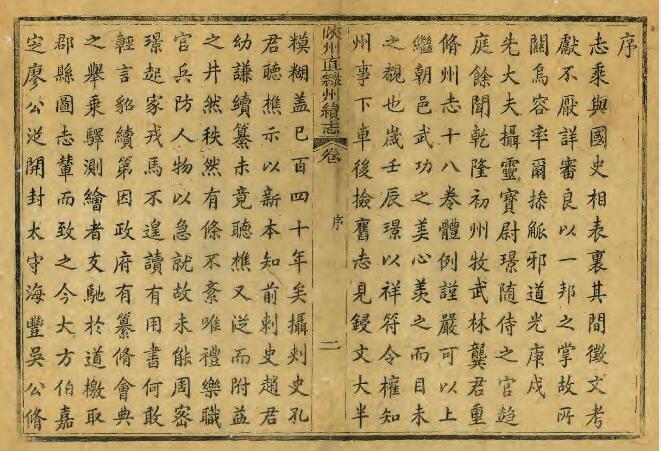 序
志乘與國史相表裏其間徵文考
獻不厭詳審良以一邦之掌故所
關烏容率爾操觚邪道光庚戌
先大夫攝靈寶尉璟随侍之官趋
庭餘聞乾隆初州牧武林龔君重
脩州志十八卷體例謹嚴可以上
繼朝邑武功之美心羡之而目未
之覩也歲壬辰璟以祥符令權知
州事下車後撿舊志見鋟文大半
陝州直隸州續志
卷
序
二
模糊蓋已百四十年矣攝刺史孔
君聽樵示以新本知前刺史趙君
幼謙續纂未竟聽樵又從而附益
之井然秩然有條不紊唯禮樂職
官兵防人物以急就故未能周密
璟起家戎馬不遑讀有用書何敢
輕言貂續第因政府有纂脩會典
之舉乗驛測繪者交馳於道檄取
郡縣圖志輦而致之今大方伯嘉
定廖公從開封太守海豐吳公脩